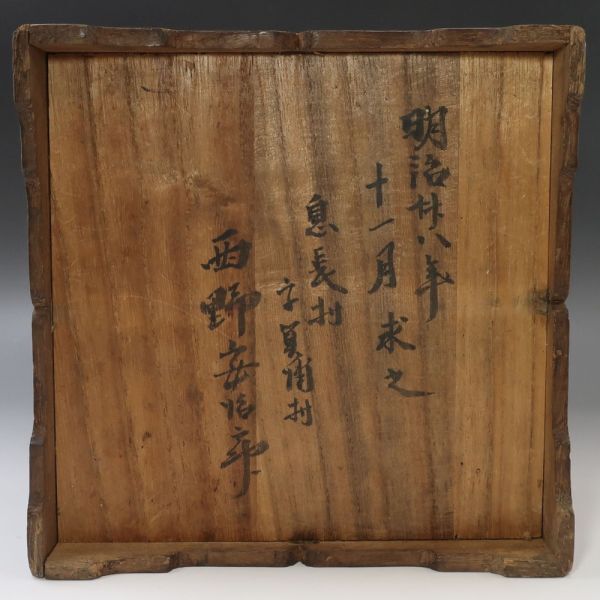 明治廿八年
十一月求之
息長村
字箕浦村
西野安治郎